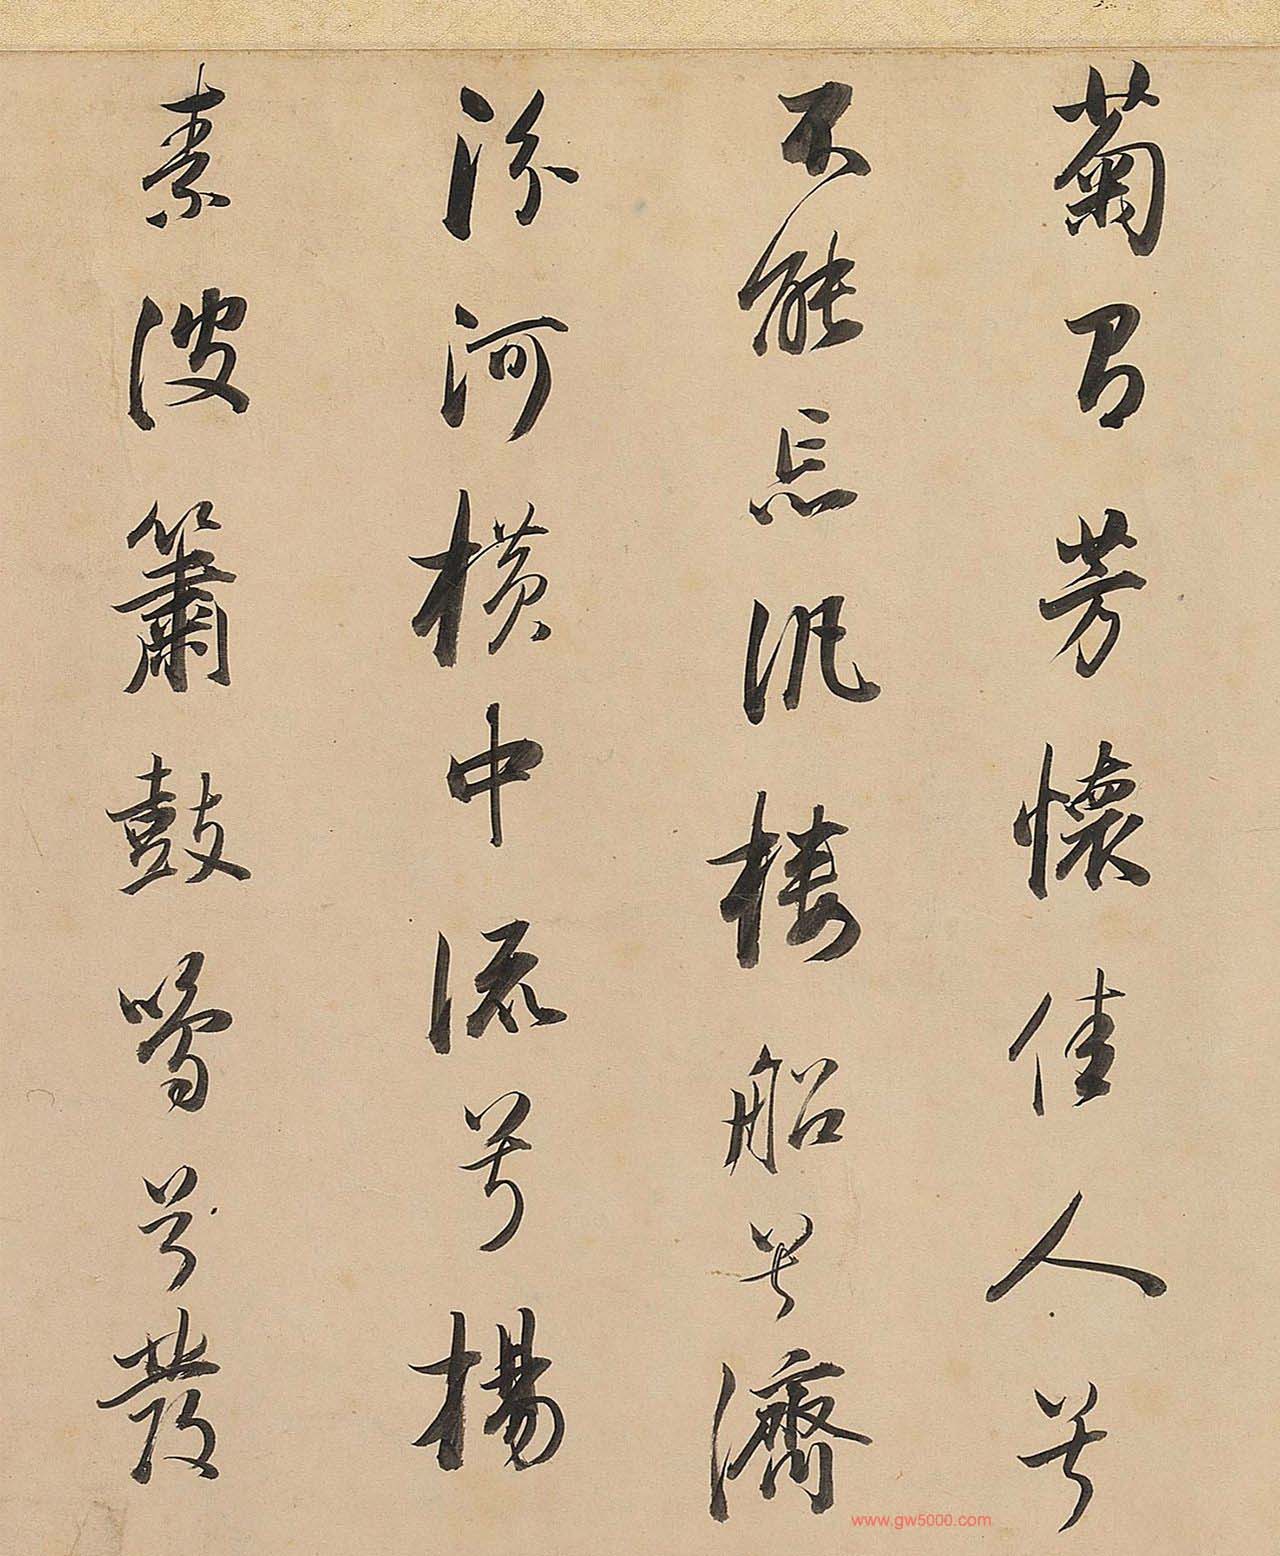 菊有芳懷佳人兮
不能忘汎樓船兮濟
汾河橫中流兮揚
素波簫鼓鳴兮發
www.gw5000.com